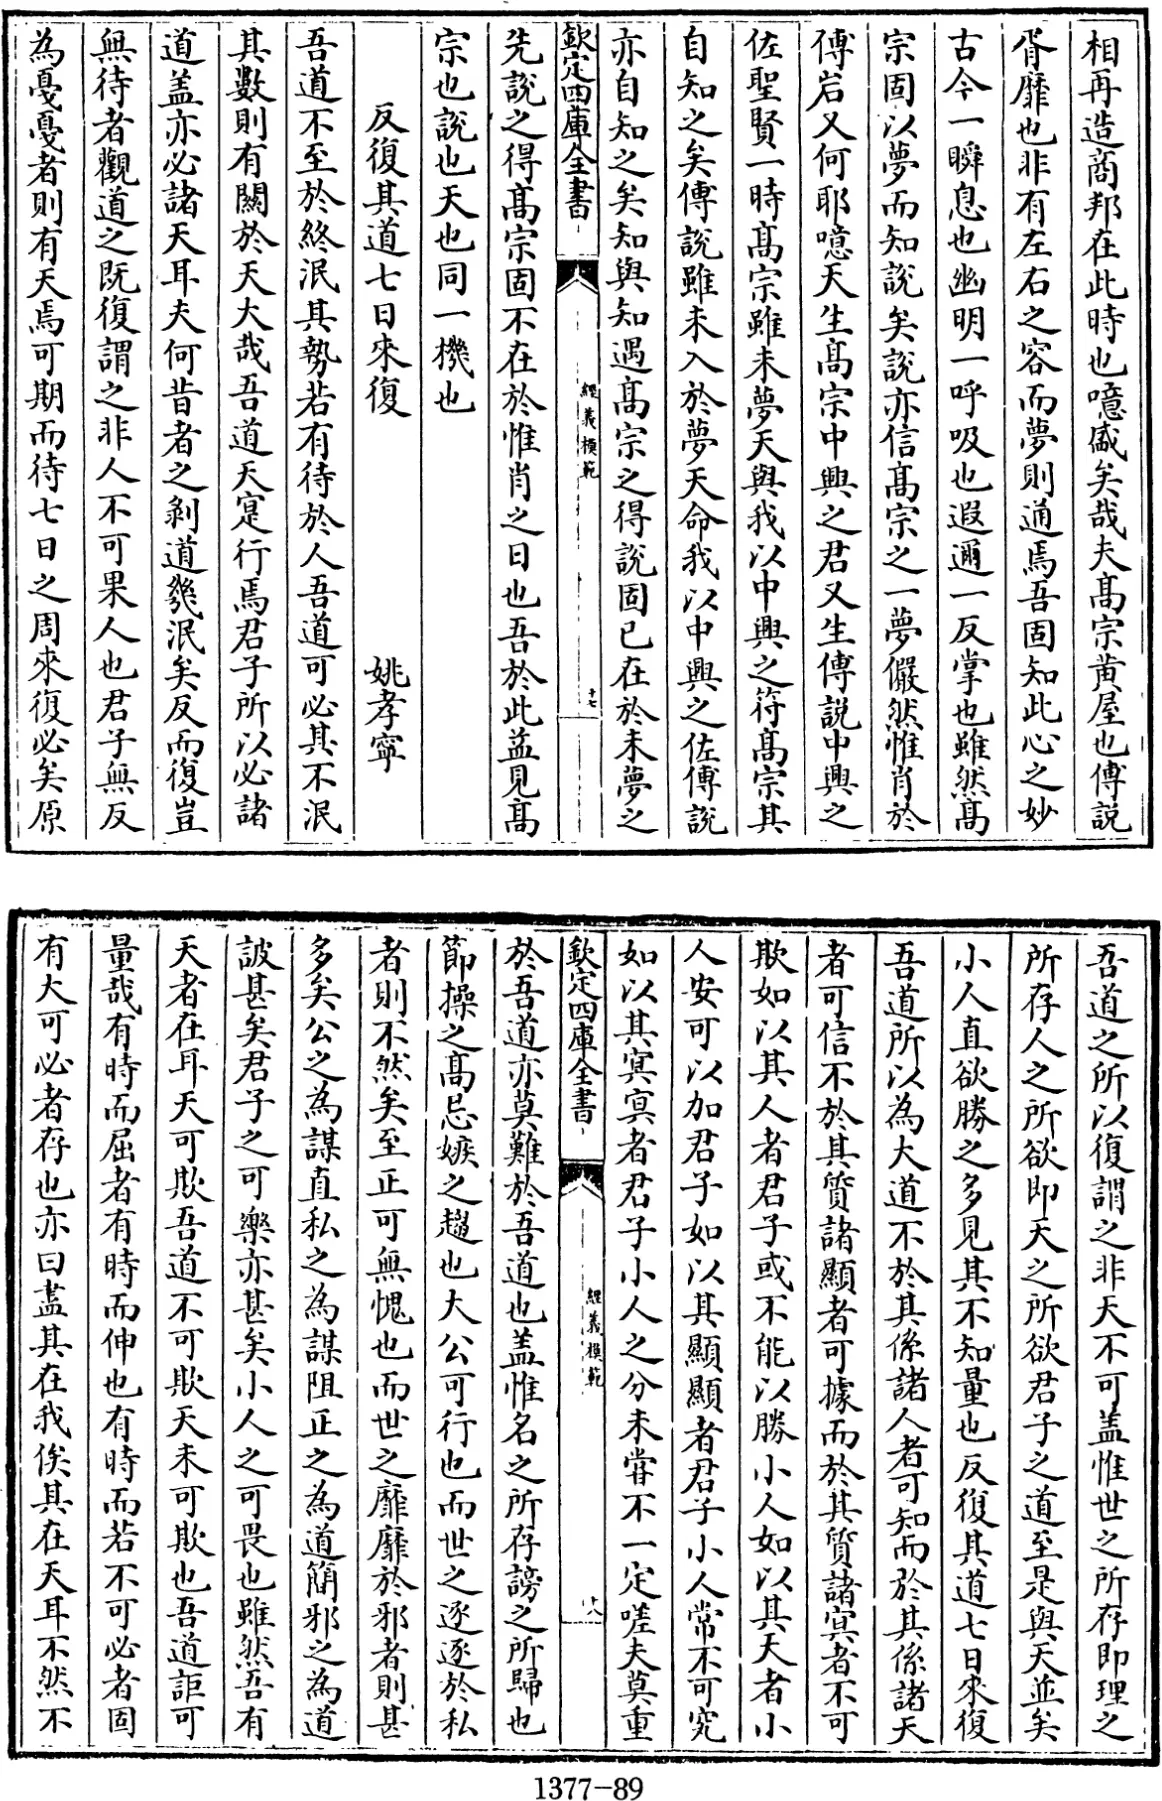 相再造商邦在此時也噫盛矣哉夫髙宗黄屋也傅説
胥靡也非有左右之容而夢則通焉吾固知此心之妙
古今一瞬息也幽明一呼吸也遐邇一反掌也雖然髙
宗固以夢而知說矣説亦信髙宗之一夢儼然惟肖於
傅岩又何耶噫天生髙宗中興之君又生傅説中興之
佐聖賢一時髙宗雖未夢天與我以中興之符髙宗其
自知之矣傅說雖未入於夢天命我以中興之佐傅說
亦自知之矣知與知遇髙宗之得說固已在於未夢之
欽定四庫全書
經義模範
十七
先說之得髙宗固不在於惟肖之日也吾於此益見髙
宗也說也天也同一機也
反復其道七日來復
姚孝寧
吾道不至於終泯其勢若有待於人吾道可必其不泯
其數則有關於天大哉吾道天寔行焉君子所以必諸
道盖亦必諸天耳夫何昔者之剝道幾泯矣反而復豈
無待者觀道之既復謂之非人不可果人也君子無反
為戞戞者則有天焉可期而待七日之周來復必矣原
吾道之所以復謂之非天不可盖惟世之所存即理之
所存人之所欲即天之所欲君子之道至是與天並矣
小人直欲勝之多見其不知量也反復其道七日來復
吾道所以為大道不於其係諸人者可知而於其係諸天
者可信不於其質諸顯者可據而於其質諸㝠者不可
欺如以其人者君子或不能以勝小人如以其天者小
人安可以加君子如以其顯顯者君子小人常不可究
如以其㝠㝠者君子小人之分未甞不一定嗟夫莫重
欽定四庫全書
經義模範
十八
於吾道亦莫難於吾道也盖惟名之所存謗之所歸也
節操之髙忌嫉之趨也大公可行也而世之逐逐於私
者則不然矣至正可無愧也而世之靡靡於邪者則甚
多矣公之為謀直私之為謀阻正之為道簡邪之為道
詖甚矣君子之可樂亦甚矣小人之可畏也雖然吾有
天者在耳天可欺吾道不可欺天未可欺也吾道詎可
量哉有時而屈者有時而伸也有時而若不可必者固
有大可必者存也亦曰盡其在我俟其在天耳不然不
1377-89